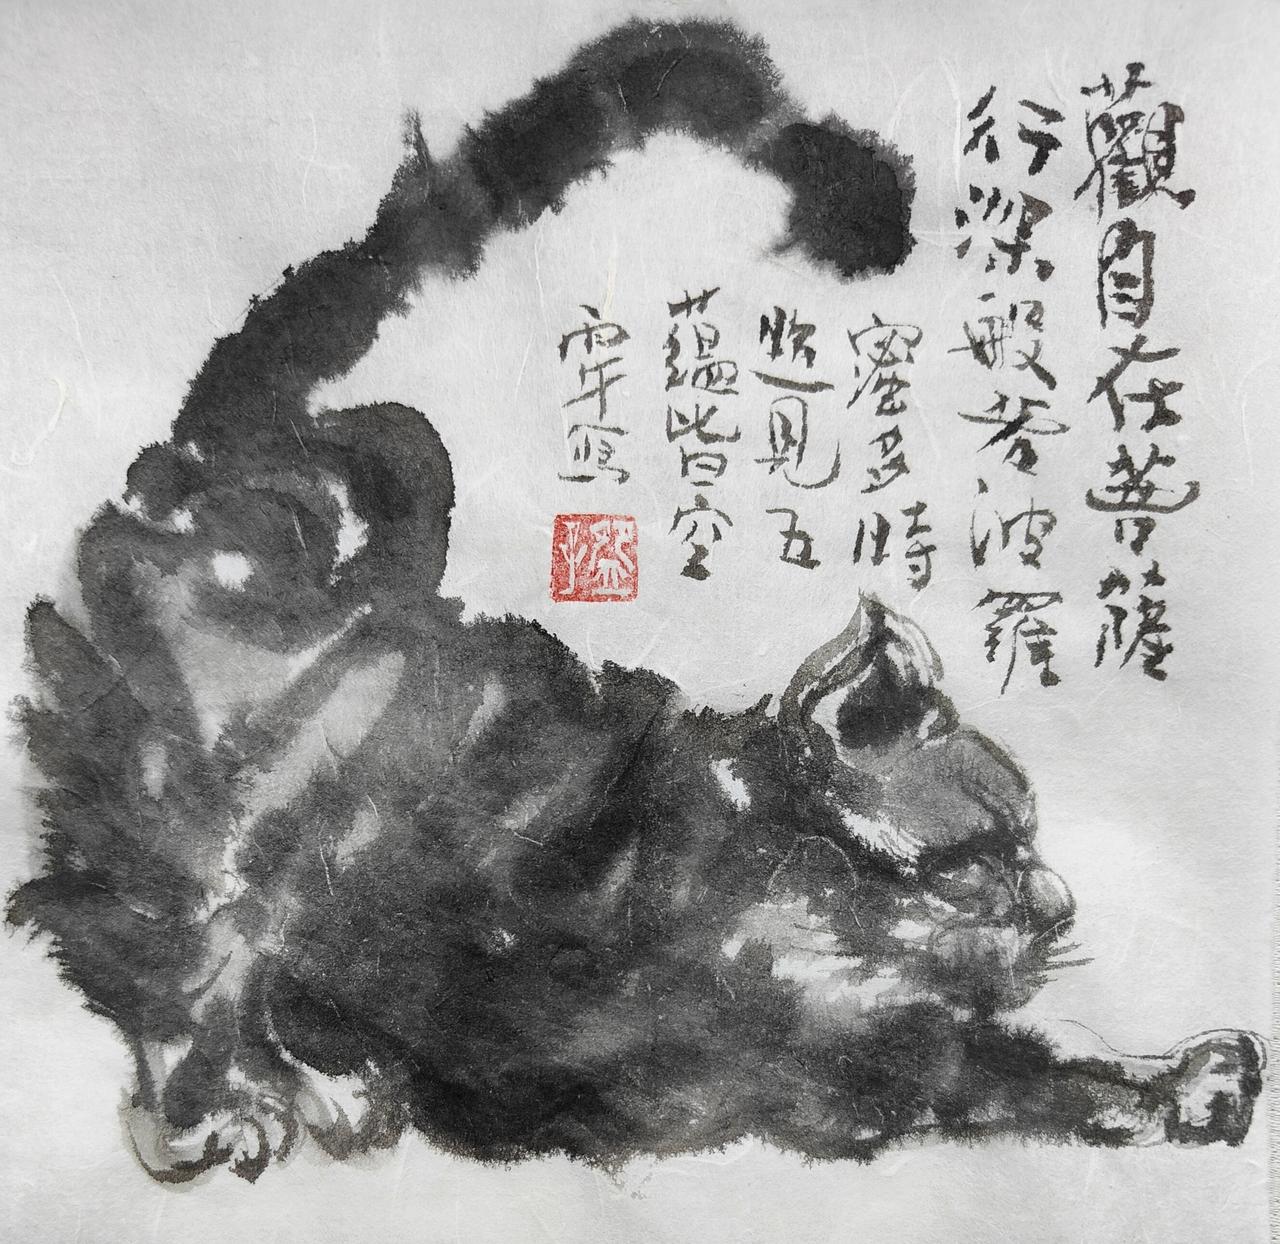 觀自在菩薩
行深般若波羅
蜜多時
照見五
蘊皆空
寫